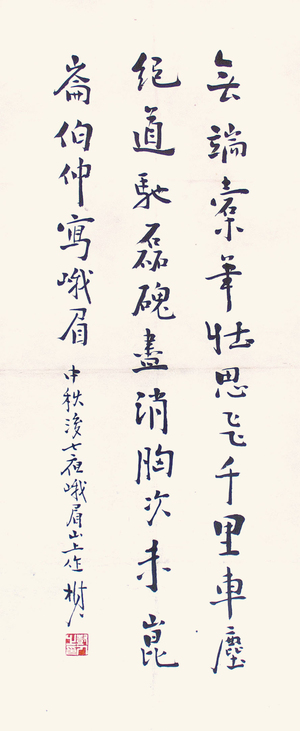 無端橐筆壯思飛千里車塵
絕道馳磊磈盡消胸次未崑
崙伯仲寫峨眉
中秋後七夜峨眉山上作樹